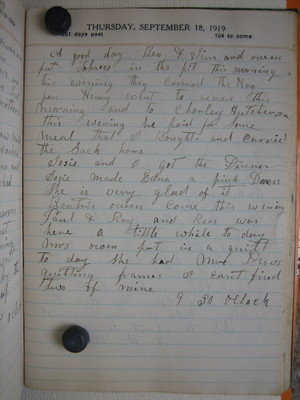 THURSDAY, SEPTEMBER 18, 1919
261 days past 104 to come
A good day Ben & Jim and owen
put in the pit this morning
this evening they covered the Hog
pen Henry went to this
morning and to Charley Hutcherson
this evening he paid for some
meal that I Bought and carried
the Sack home
Josie and I got the Dinner
Josie made Edna a pink Dress
She is very glad of it
Beatrice owen come this evening
Paul & Roy and Rees was
here a little while to day
Mrs owen put in a quilt
to day she had Mrs
quilting frames I cant find
two of mine
9 30 Oclock